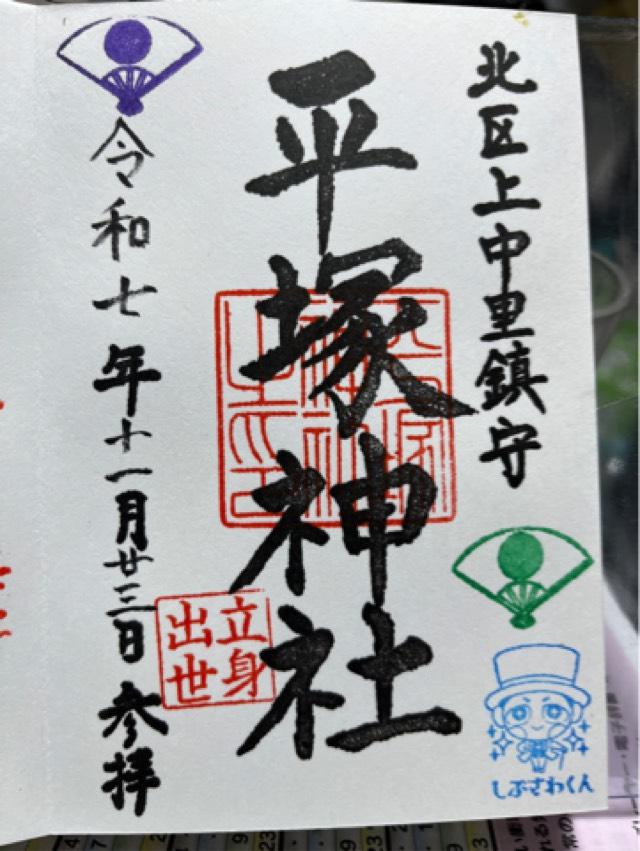 北区上中里鎮守
平塚神社
立身
出世
令和七年十一月廿三日 参拝
しぶさわくん